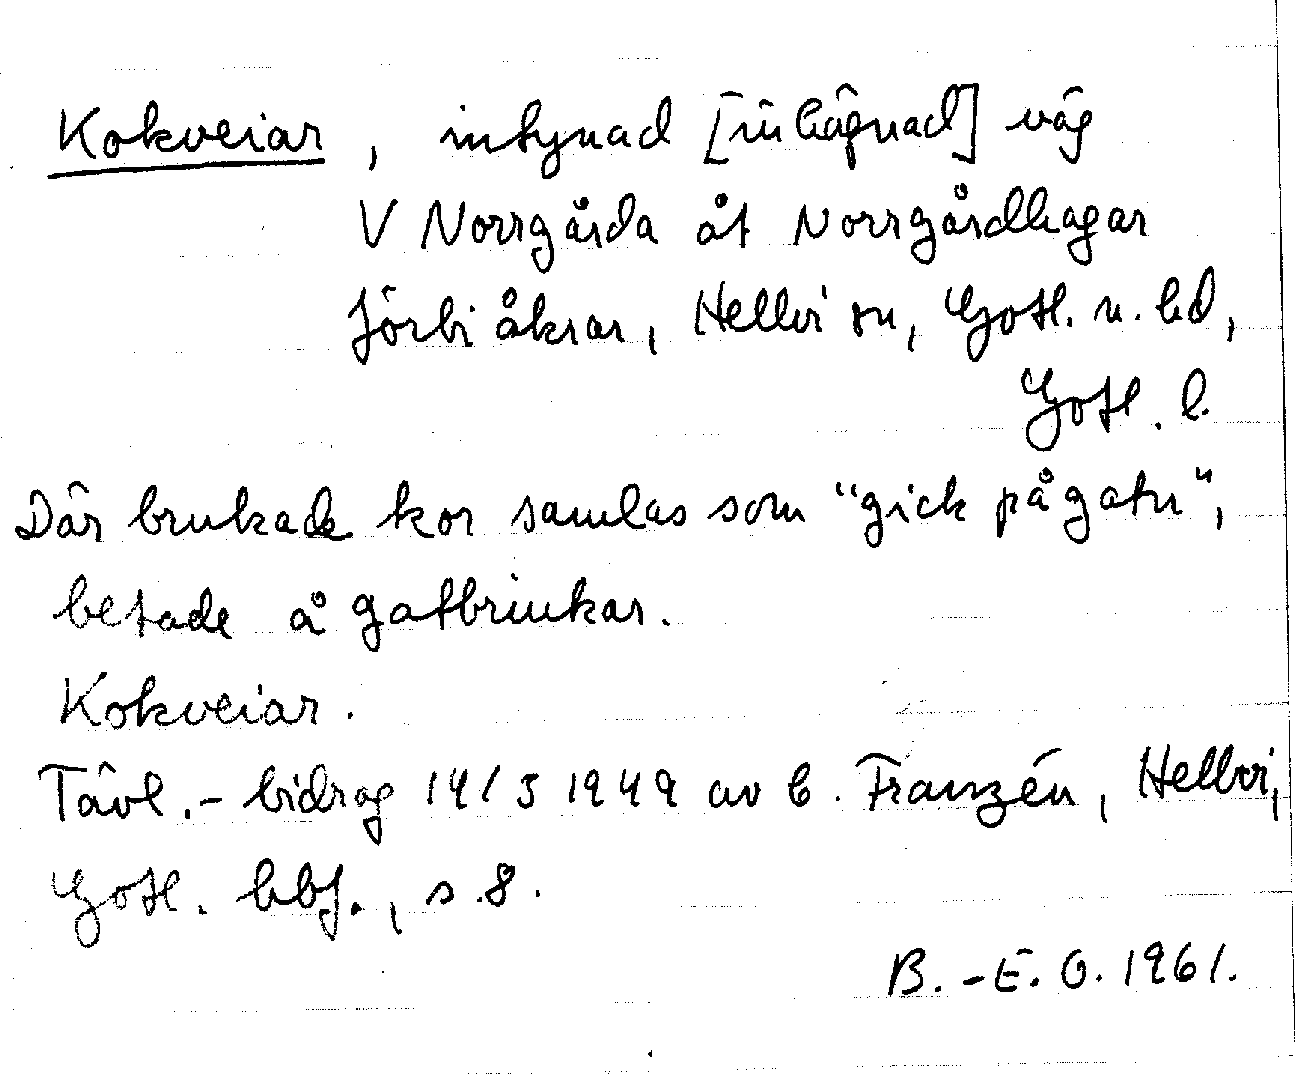 Kokveiar, intynad [inhägnad] väg
V Norrgårda åt Norrgårdhagar
förbi åkrar, Hellvi sn, Gotl. n. hd,
Gotl. l.
Där brukade kor samlas som "gick på gatu",
betade å gatbrinkar.
Kokveiar.
Tävl.-bidrag 14/5 1949 av C. Franzén, Hellvi,
Gotl. hbf., s.8.
B.-E. O. 1961.